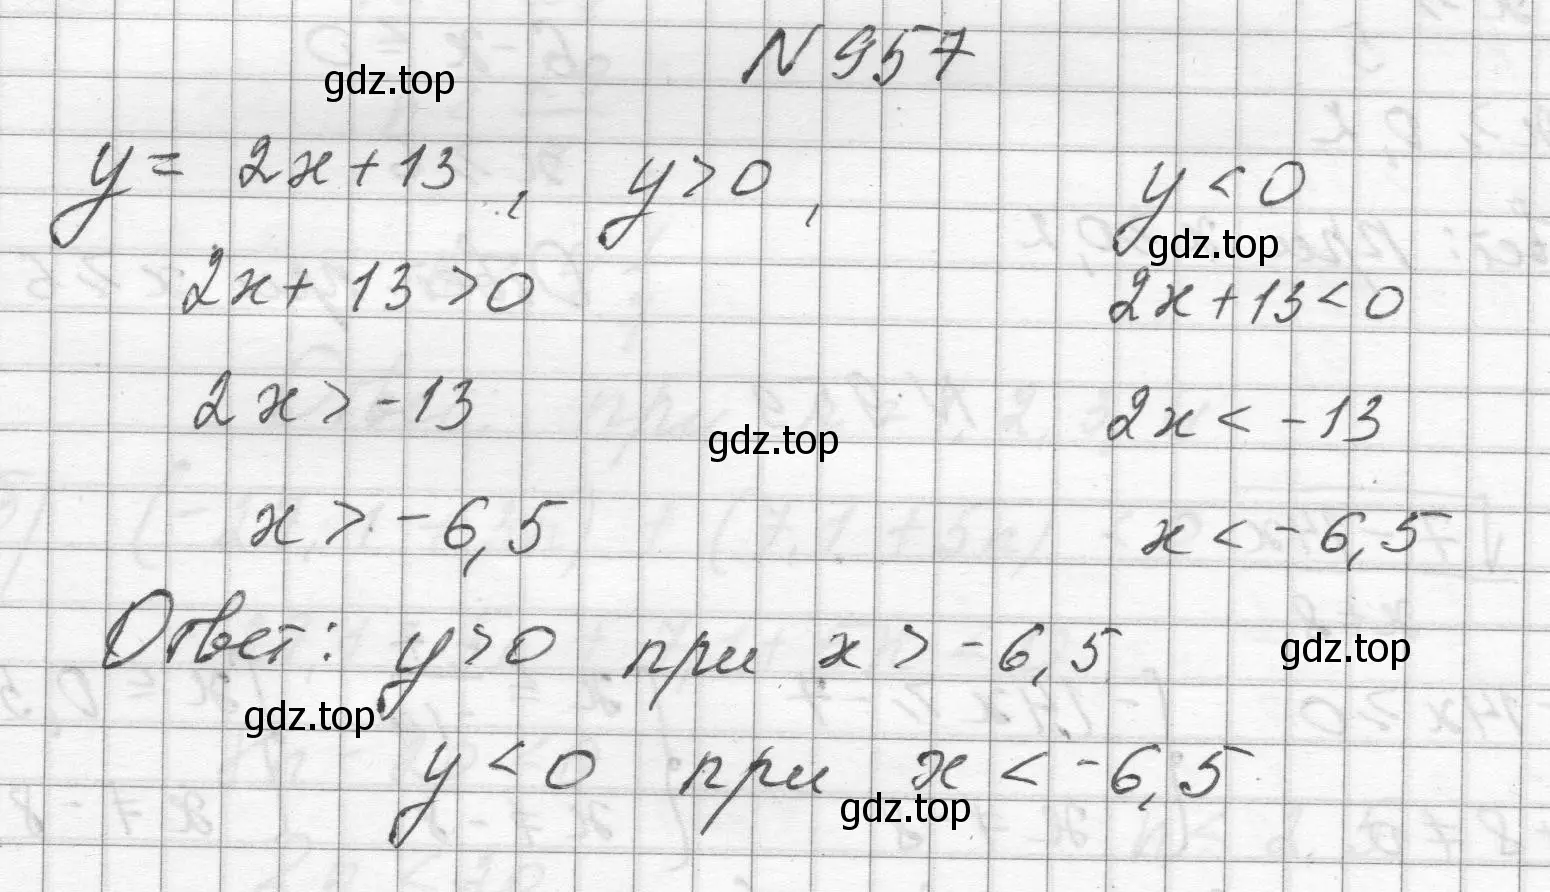 N 957
gdz.top
y = 2x + 13, y > 0, y < 0
gdz.top
2x + 13 > 0 2x + 13 < 0
2x > -13 2x < -13
gdz.top
x > -6,5 x < -6,5
Ответ: y > 0 при x > -6,5
gdz.top
gdz.top
y < 0 при x < -6,5
gdz.top